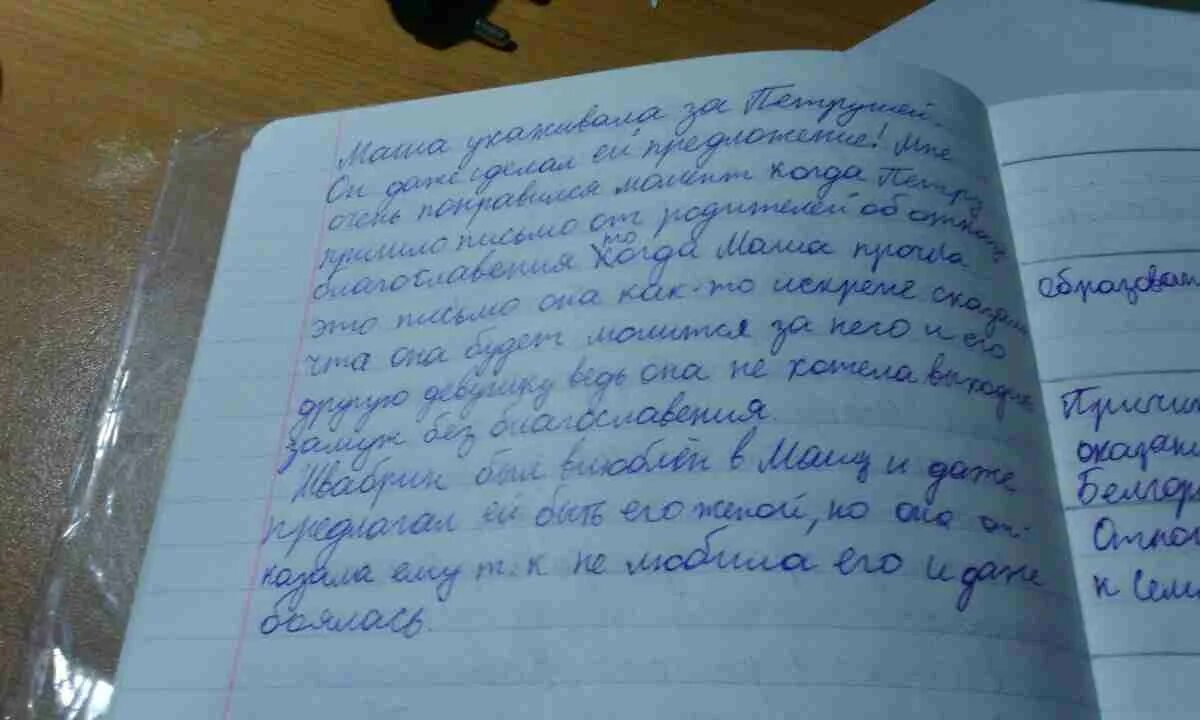 Маша ухаживала за Петрушей.
Он даже сделал ей предложение! Мне
очень понравился момент когда Петру
пришло письмо от родителей об отказе
благославения то когда Маша прочла
это письмо она как-то искрене сказала
что она будет молится за него и его
другую девушку ведь она не хотела выходить
замуж без благославения.
Швабрин был влюблён в Машу и даже
предлагал ей быть его женой, но она от-
казала ему т.к не любила его и даже
боялась.
образован
Причи
оказан
Белгор
Отно
к Сем